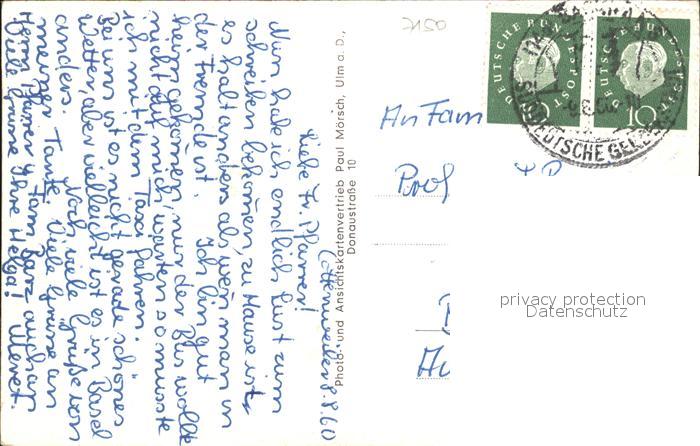 Ottenweiler 8.8.60
Liebe Fr. Pfarrer!
Nun habe ich endlich Lust zum
schreiben bekommen, zu Hause ist
es halt anders als wenn man in
der Fremde ist. Ich bin gut
heim gekommen, nur der Bus wollte
nicht auf mich warten so musste
ich mit dem Taxi fahren.
Bei uns ist es nicht gerade schönes
Wetter, aber vielleicht ist es in Basel
anders. Noch viele Grüße von
meiner Tante. Viele Grüsse an
Herrn Pfarrer u. Fam. auch an
Viele Grüsse Ihre Helga!
Photo- und Ansichtskartenvertrieb Paul Mörsch, Ulm a. D.,
Donaustraße 10
2150
An Fam
Prof
DEUTSCHE BUNDESPOST
DEUTSCHE BUNDESPOST
10
SÜDDEUTSCHE
privacy protection
Datenschutz